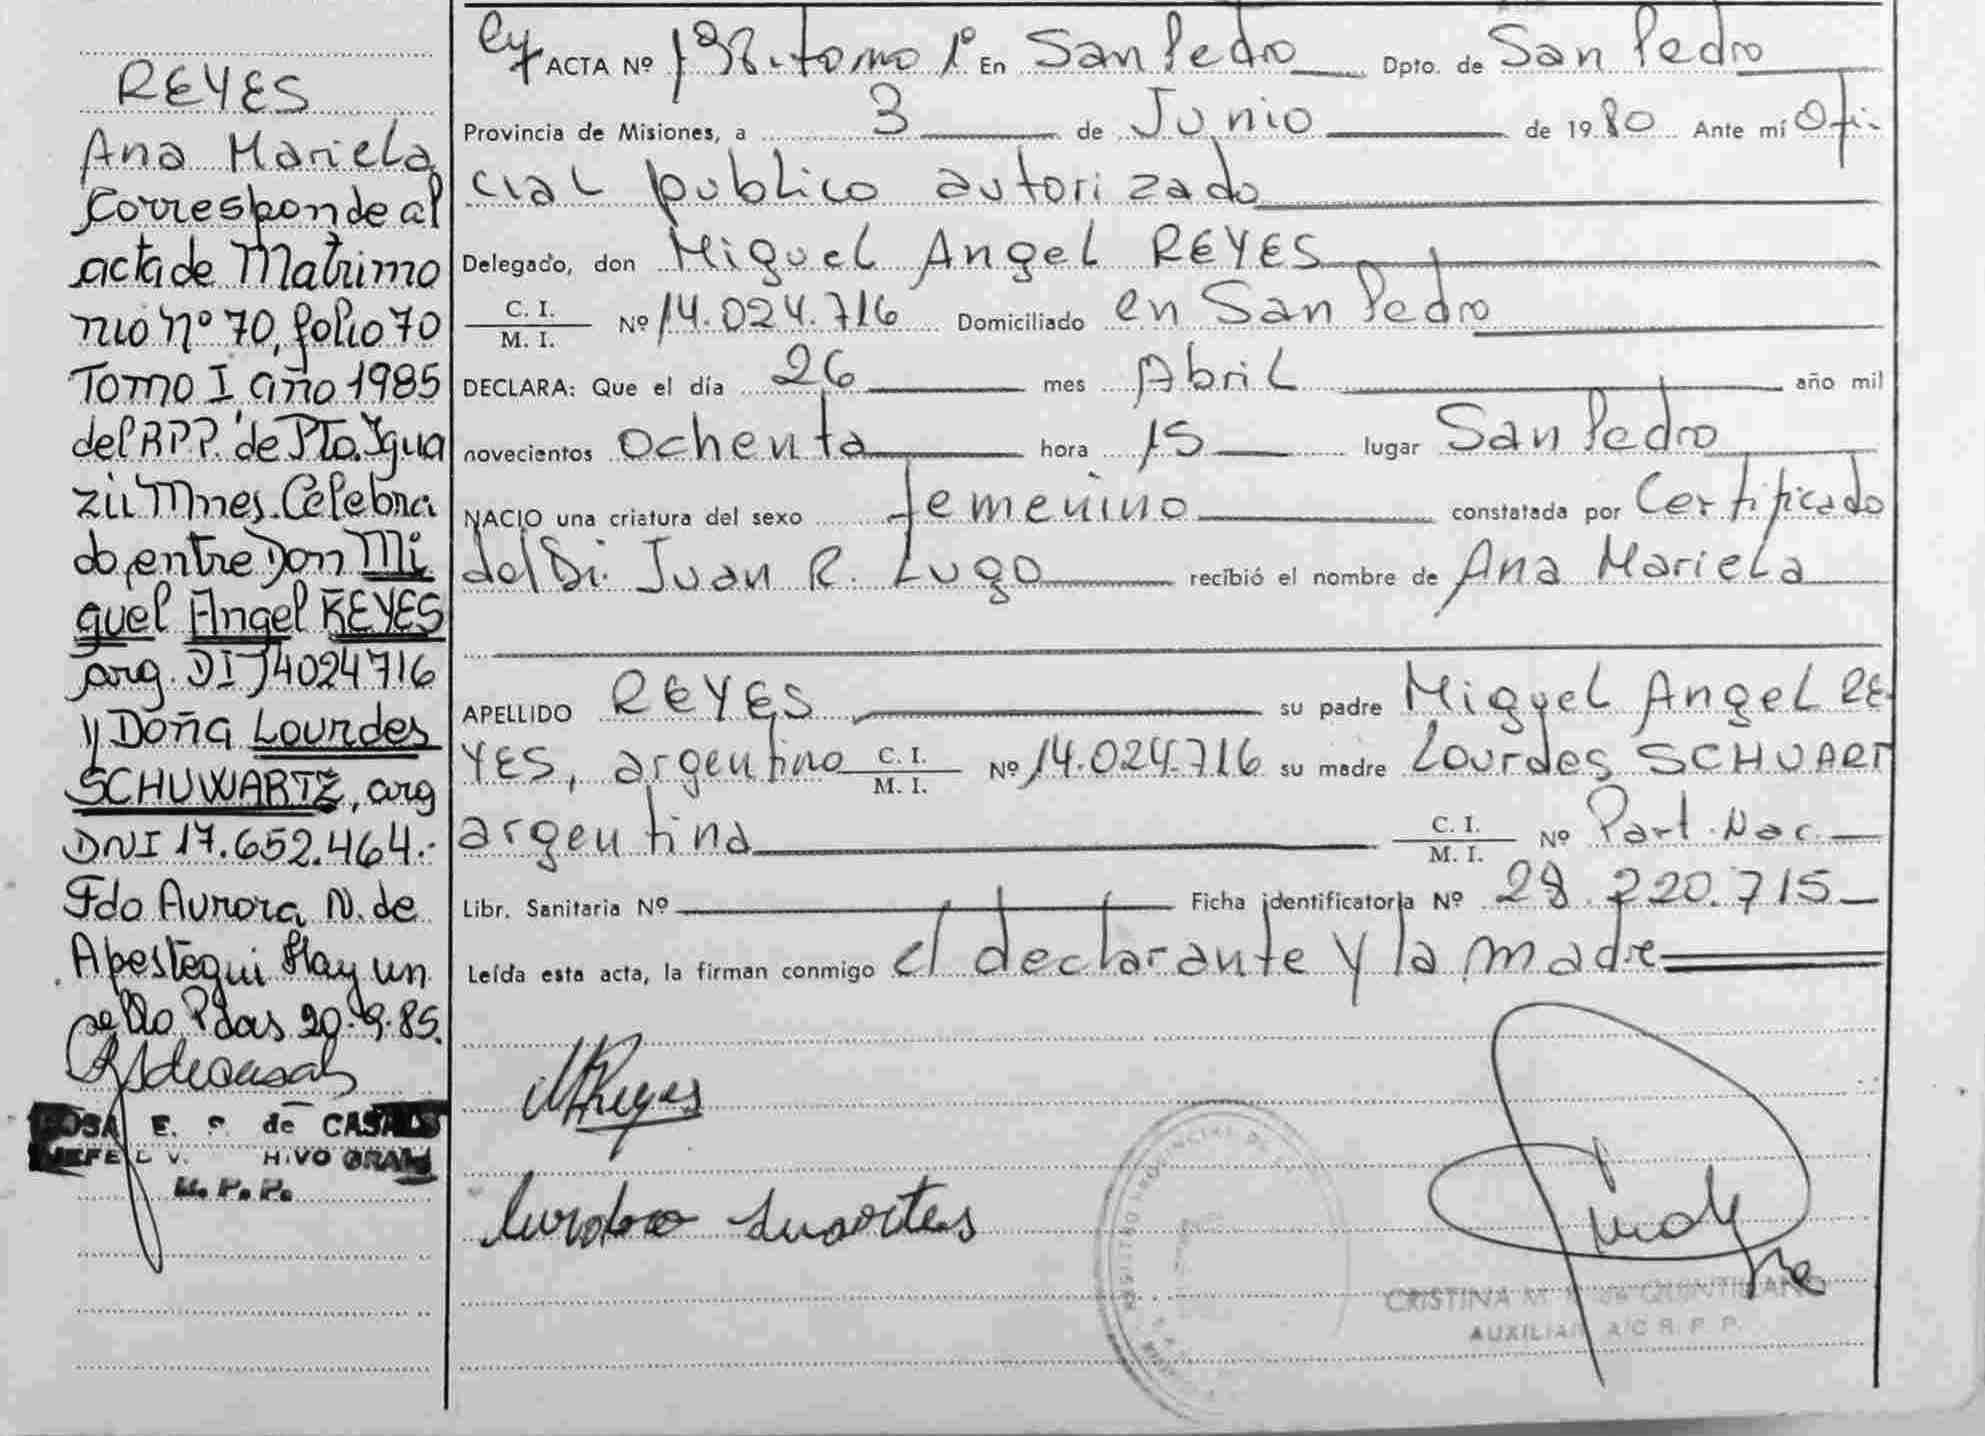 REYES
Ana Mariela
Corresponde al
acta de Matrimo
nio nº 70, folio 70
Tomo I año 1985
del RPP. de Pto. Igua
zú Mnes. Celebra
do, entre Don Mi
guel Angel REYES
arg. DI 14024716
y Doña Lourdes
SCHUWARTZ, arg
DNI 17.652.464.-
Fdo Aurora N. de
Apestegui Hay un
sello Pdas 20.9.85.
ROSA E. S. de CASALS
JEFE DIV.
R. P. P.
ACTA Nº 198. tomo 1º En San Pedro Dpto. de San Pedro
Provincia de Misiones, a 3 de Junio de 1980 Ante mí Ofi-
cial publico autorizado
Delegado, don Miguel Angel REYES
C. I.
M. I. Nº 14.024.716 Domiciliado en San Pedro
DECLARA: Que el día 26 mes Abril año mil
novecientos ochenta hora 15 lugar San Pedro
NACIO una criatura del sexo femenino constatada por Certificado
del Dr. Juan R. Lugo recibió el nombre de Ana Mariela
APELLIDO REYES su padre Miguel Angel RE-
YES, argentino C. I.
M. I. Nº 14.024.716 su madre Lourdes SCHUART
argentina C. I.
M. I. Nº Part. Nac.
Libr. Sanitaria Nº Ficha identificatoria Nº 28.220.715
Leída esta acta, la firman conmigo el declarante y la madre
MAReyes
CRISTINA M. de QUINTILLANO
AUXILIAR A/C R. P. P.